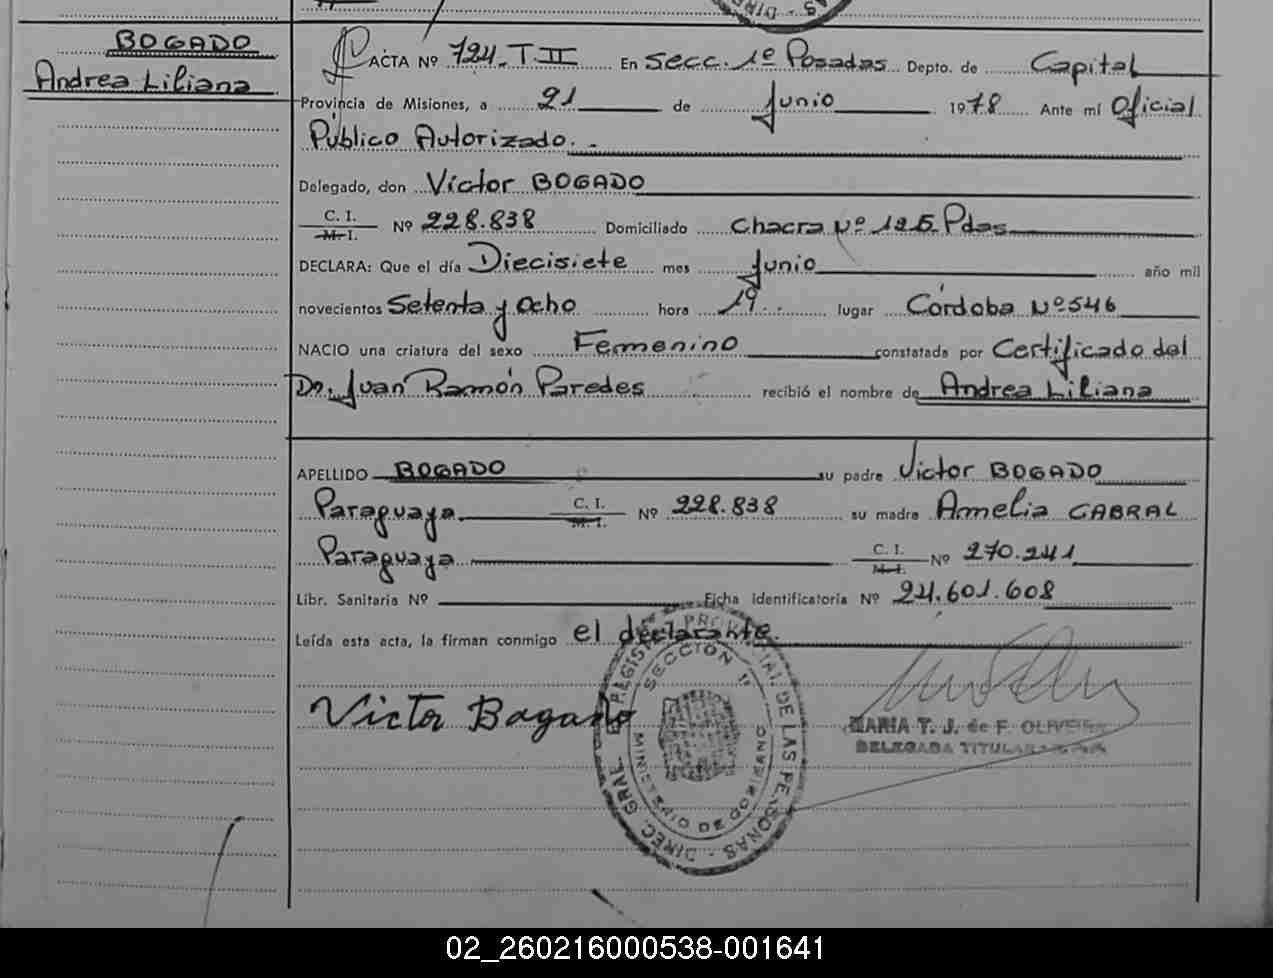 BOGADO
Andrea Liliana
ACTA Nº 724. T. II En Secc. 1º Posadas Depto. de Capital
Provincia de Misiones, a 21 de Junio 1978 Ante mí Oficial
Público Autorizado. -
Delegado, don Víctor BOGADO
C. I.
M. I. Nº 228.838 Domiciliado Chacra Nº 125 Pdas
DECLARA: Que el día Diecisiete mes Junio año mil
novecientos Setenta y Ocho hora 19 lugar Córdoba Nº 546
NACIO una criatura del sexo Femenino constatada por Certificado del
Dr. Juan Ramón Paredes recibió el nombre de Andrea Liliana
APELLIDO BOGADO su padre Victor BOGADO
Paraguaya C. I. M. I. Nº 228.838 su madre Amelia CABRAL
Paraguaya C. I. M. I. Nº 270.241
Libr. Sanitaria Nº Ficha identificatoria Nº 24.601.608
Leída esta acta, la firman conmigo el declarante.
Victor Bogado
DIREC. GRAL. REGISTRO PROVINCIAL DE LAS PERSONAS
SECCION 1ª
MINISTERIO DE GOBIERNO
MARIA T. J. de F. OLIVEIRA
DELEGADA TITULAR
02_260216000538-001641